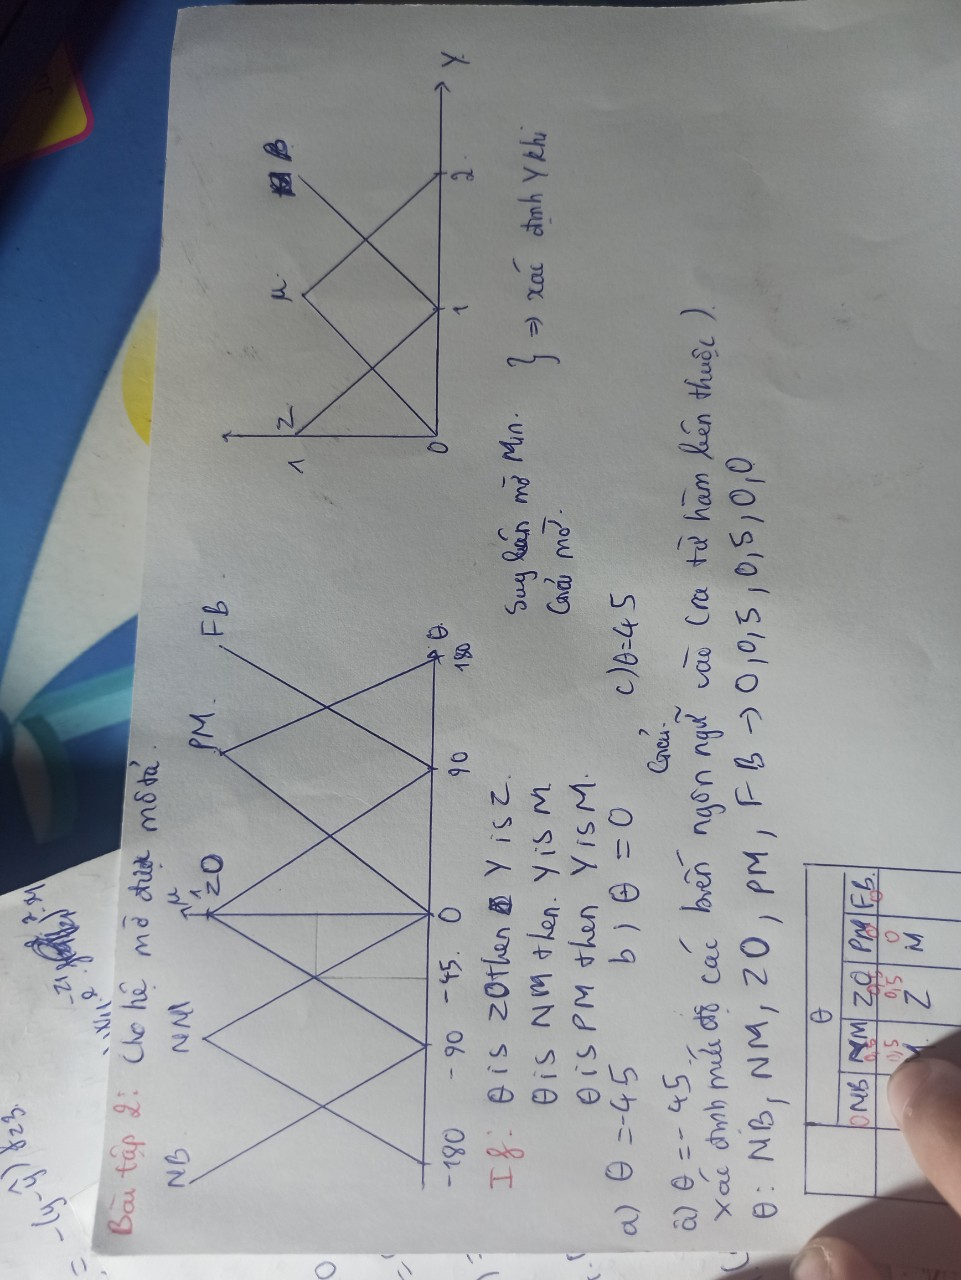 Bài tập 2: Cho hệ mờ được mô tả.
NB NM μ 1 ZO PM. FB
-180 -90 -45. 0 90 180 θ.
1 Z M B
0 1 2 Y
If: θ is ZO then Y is Z.
θ is NM then. Y is M
θ is PM then Y is M.
Suy luận mờ Min.
Giải mờ.
} => xác định Y khi
a) θ = -45 b, θ = 0 c) θ = 45
Giải.
a) θ = -45
xác định mức độ các biến ngôn ngữ vào (ra từ hàm liên thuộc).
θ: NB, NM, ZO, PM, FB → 0, 0,5, 0,5, 0, 0
θ
NB NM ZO PM FB.
0 0,5 0,5 0 0
0,5 0,5 0
Z M